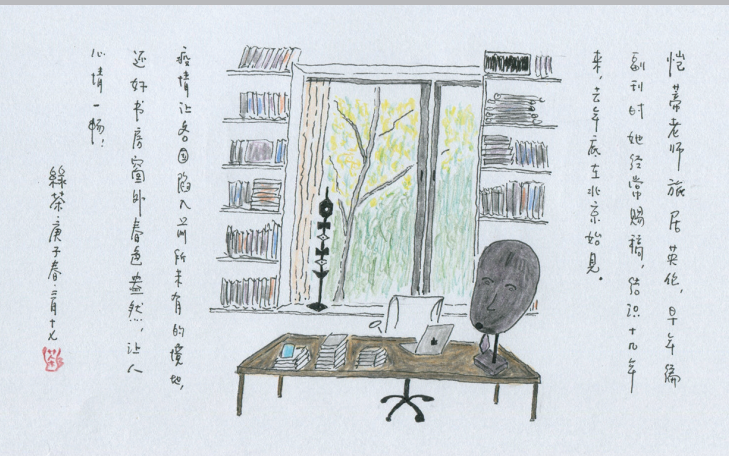 恺蒂老师旅居英伦，早年编
副刊时她经常赐稿，结识十几年
来，去年底在北京始见。
疫情让各国陷入前所未有的境地，
还好书房窗外春色盎然，让人
心情一畅！
綠茶·庚子春·二月十九